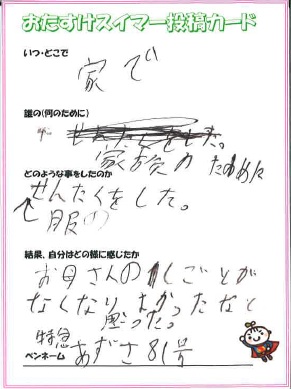 おたすけスイマー投稿カード
いつ・どこで
家で
誰の(何のために)
家族のために
どのような事をしたのか
せんたくをした。
服の
結果、自分はどの様に感じたか
お母さんのしごとが
なくなりよかったなと
思った。
ペンネーム 特急あずさ81号